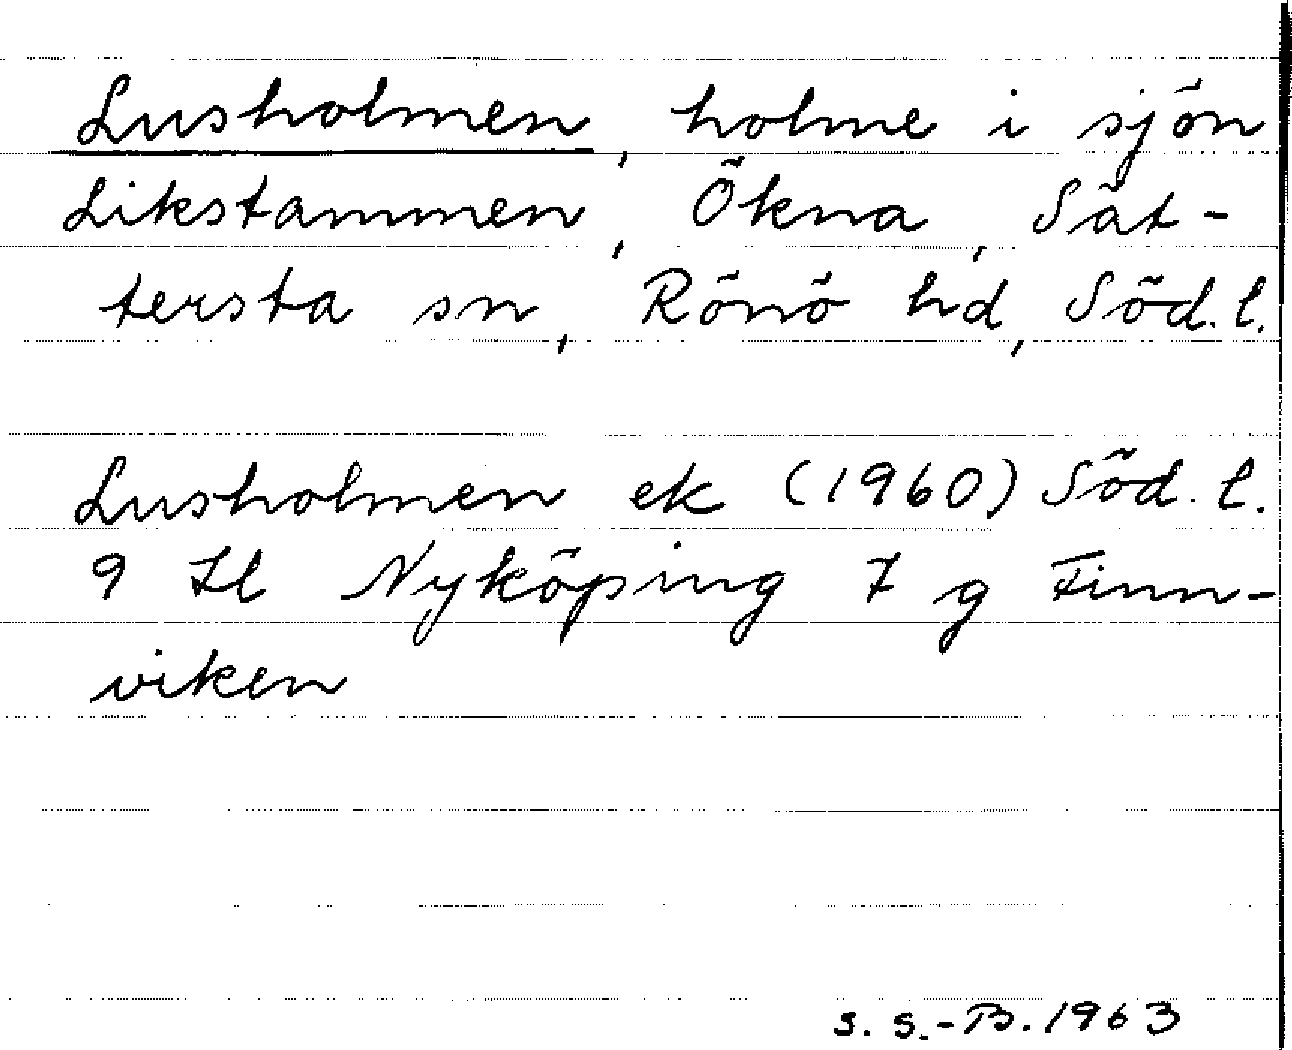 Lusholmen, holme i sjön
Likstammen, Ökna, Sät-
tersta sn, Rönö hd, Söd. l.
Lusholmen ek (1960) Söd. l.
9 Nyköping 7 g Finn-
viken
S. S.-B. 1963